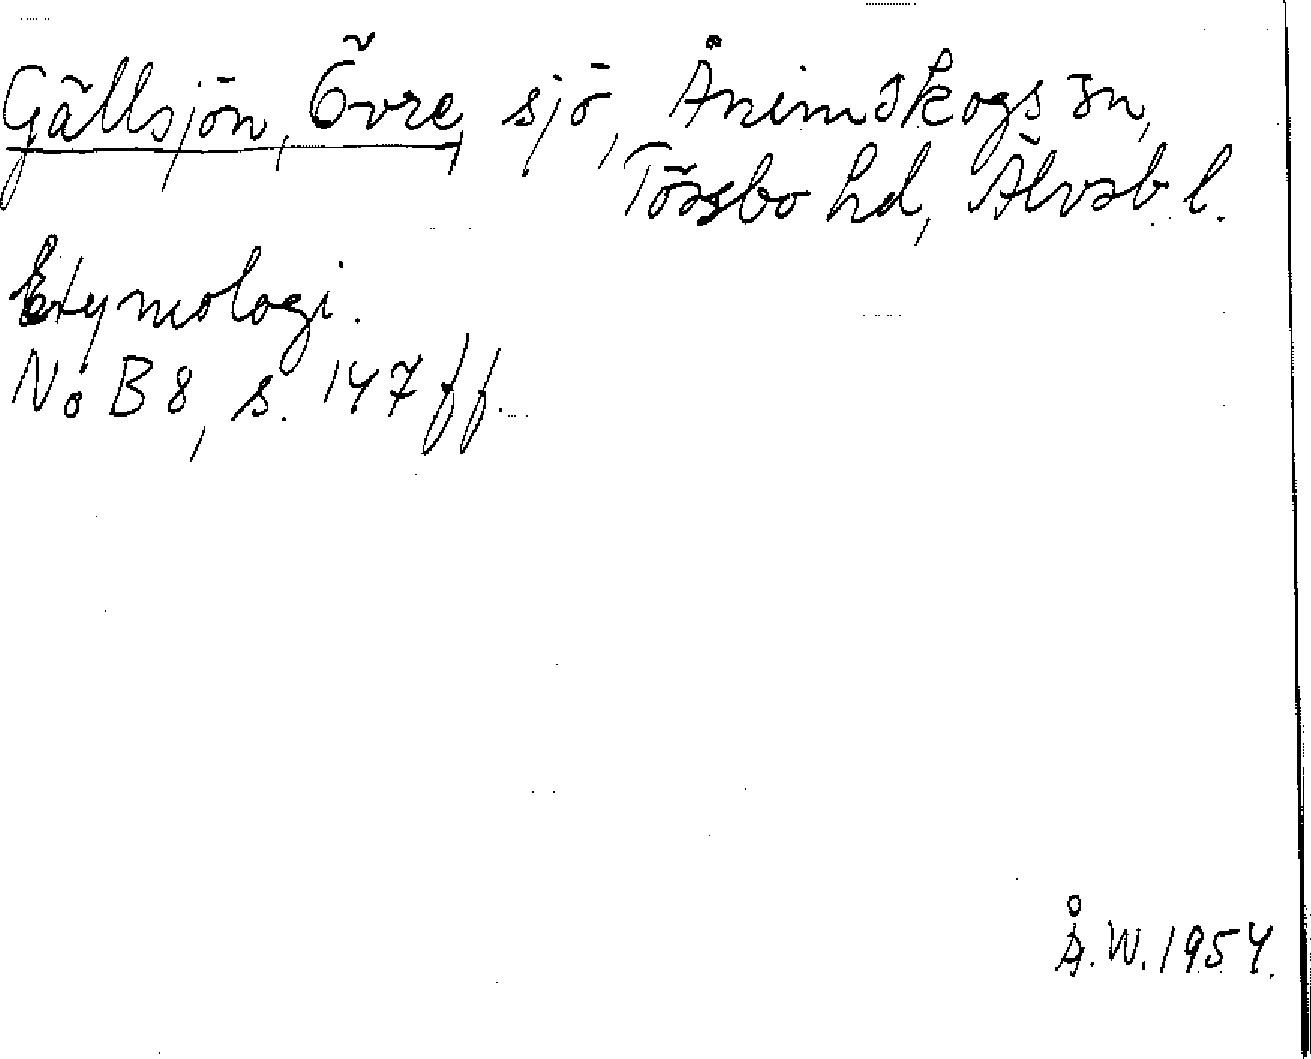 Gällsjön, Övre, sjö, Ånimskogs sn,
Tössbo hd, Älvsb. l.
Etymologi.
NoB 8, s. 147 ff.
Å.W. 1954.